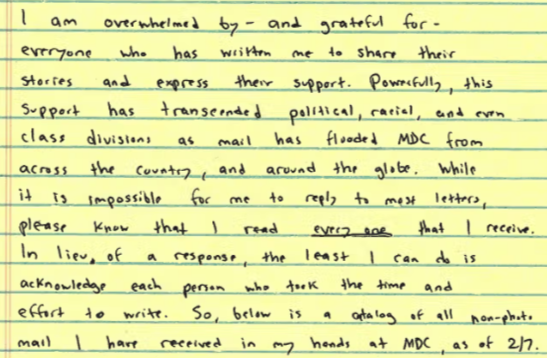 I am overwhelmed by - and grateful for -
everyone who has written me to share their
stories and express their support. Powerfully, this
support has transcended political, racial, and even
class divisions as mail has flooded MDC from
across the country, and around the globe. While
it is impossible for me to reply to most letters,
please know that I read every one that I receive.
In lieu of a response, the least I can do is
acknowledge each person who took the time and
effort to write. So, below is a catalog of all non-photo
mail I have received in my hands at MDC, as of 2/7.